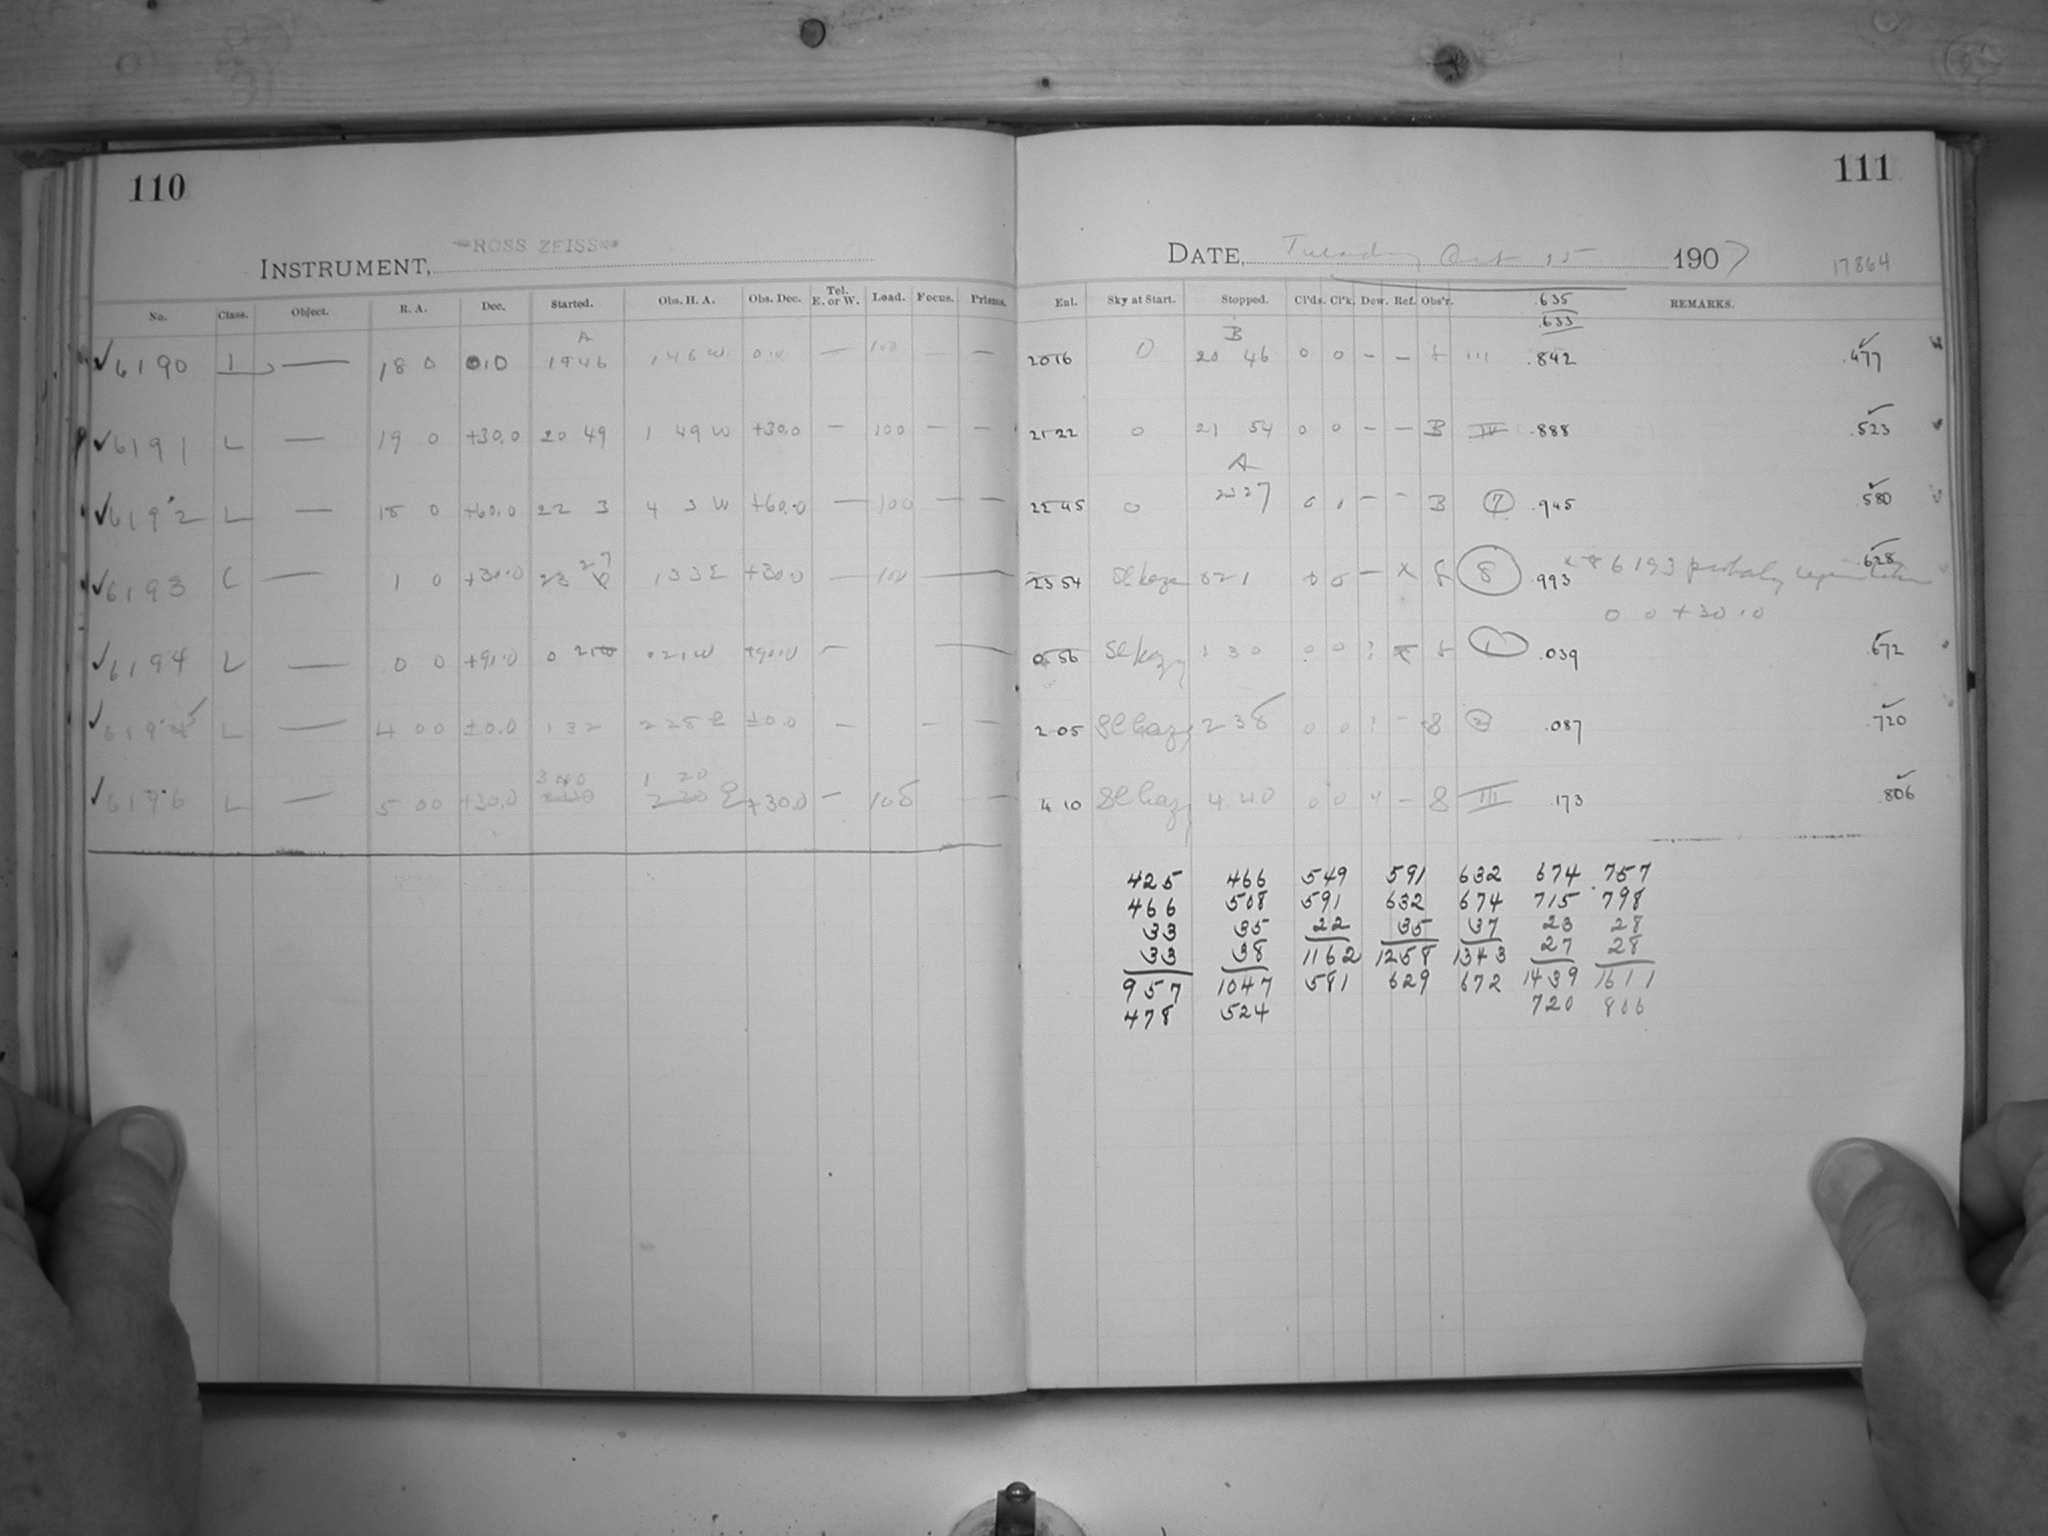 110
111
INSTRUMENT, ROSS ZEISS
DATE, Tuesday Oct 15 1907
17864
No. Class. Object. R. A. Dec. Started. Obs. H. A. Obs. Dec. Tel. E. or W. Load. Focus. Prisms. Ent. Sky at Start. Stopped. Cl'ds. Cl'k. Dew. Ref. Obs'r. REMARKS.
.635
.633
A B
6190 L — 18 0 0.0 1946 146 W 0.0 — 100 — — 2016 0 20 46 0 0 - - 8 III .842 .477
6191 L — 19 0 +30.0 20 49 1 49 W +30.0 — 100 — — 2122 0 21 54 0 0 - - B IV .888 .523
A
6192 L — 18 0 +60.0 22 3 4 3 W +60.0 — 100 — — 2245 0 2227 0 - - B 7 .945 .580
6193 C — 1 0 +30.0 23 27 133 E +30.0 — 100 — 2354 Sl haze 021 0 0 — x 8 8 .993 x 6193 probably .628
0 0 +30.0
6194 L — 0 0 +90.0 0 21 021 W +90.0 — — 0 56 Sl hazy 1 30 0 0 ? 8 1 .039 .672
6195 L — 4 00 ±0.0 132 228 E ±0.0 — — — 2 05 Sl hazy 238 0 0 ? - 8 2 .087 .720
340 1 20
6196 L — 5 00 +30.0 220 E +30.0 — 108 — — 4 10 Sl hazy 4 40 0 0 — 8 III .173 .806
425 466 549 591 632 674 .757
466 508 591 632 674 715 798
33 35 22 35 37 23 28
33 38 1162 1258 1343 27 28
957 1047 581 629 672 1439 1611
478 524 720 806